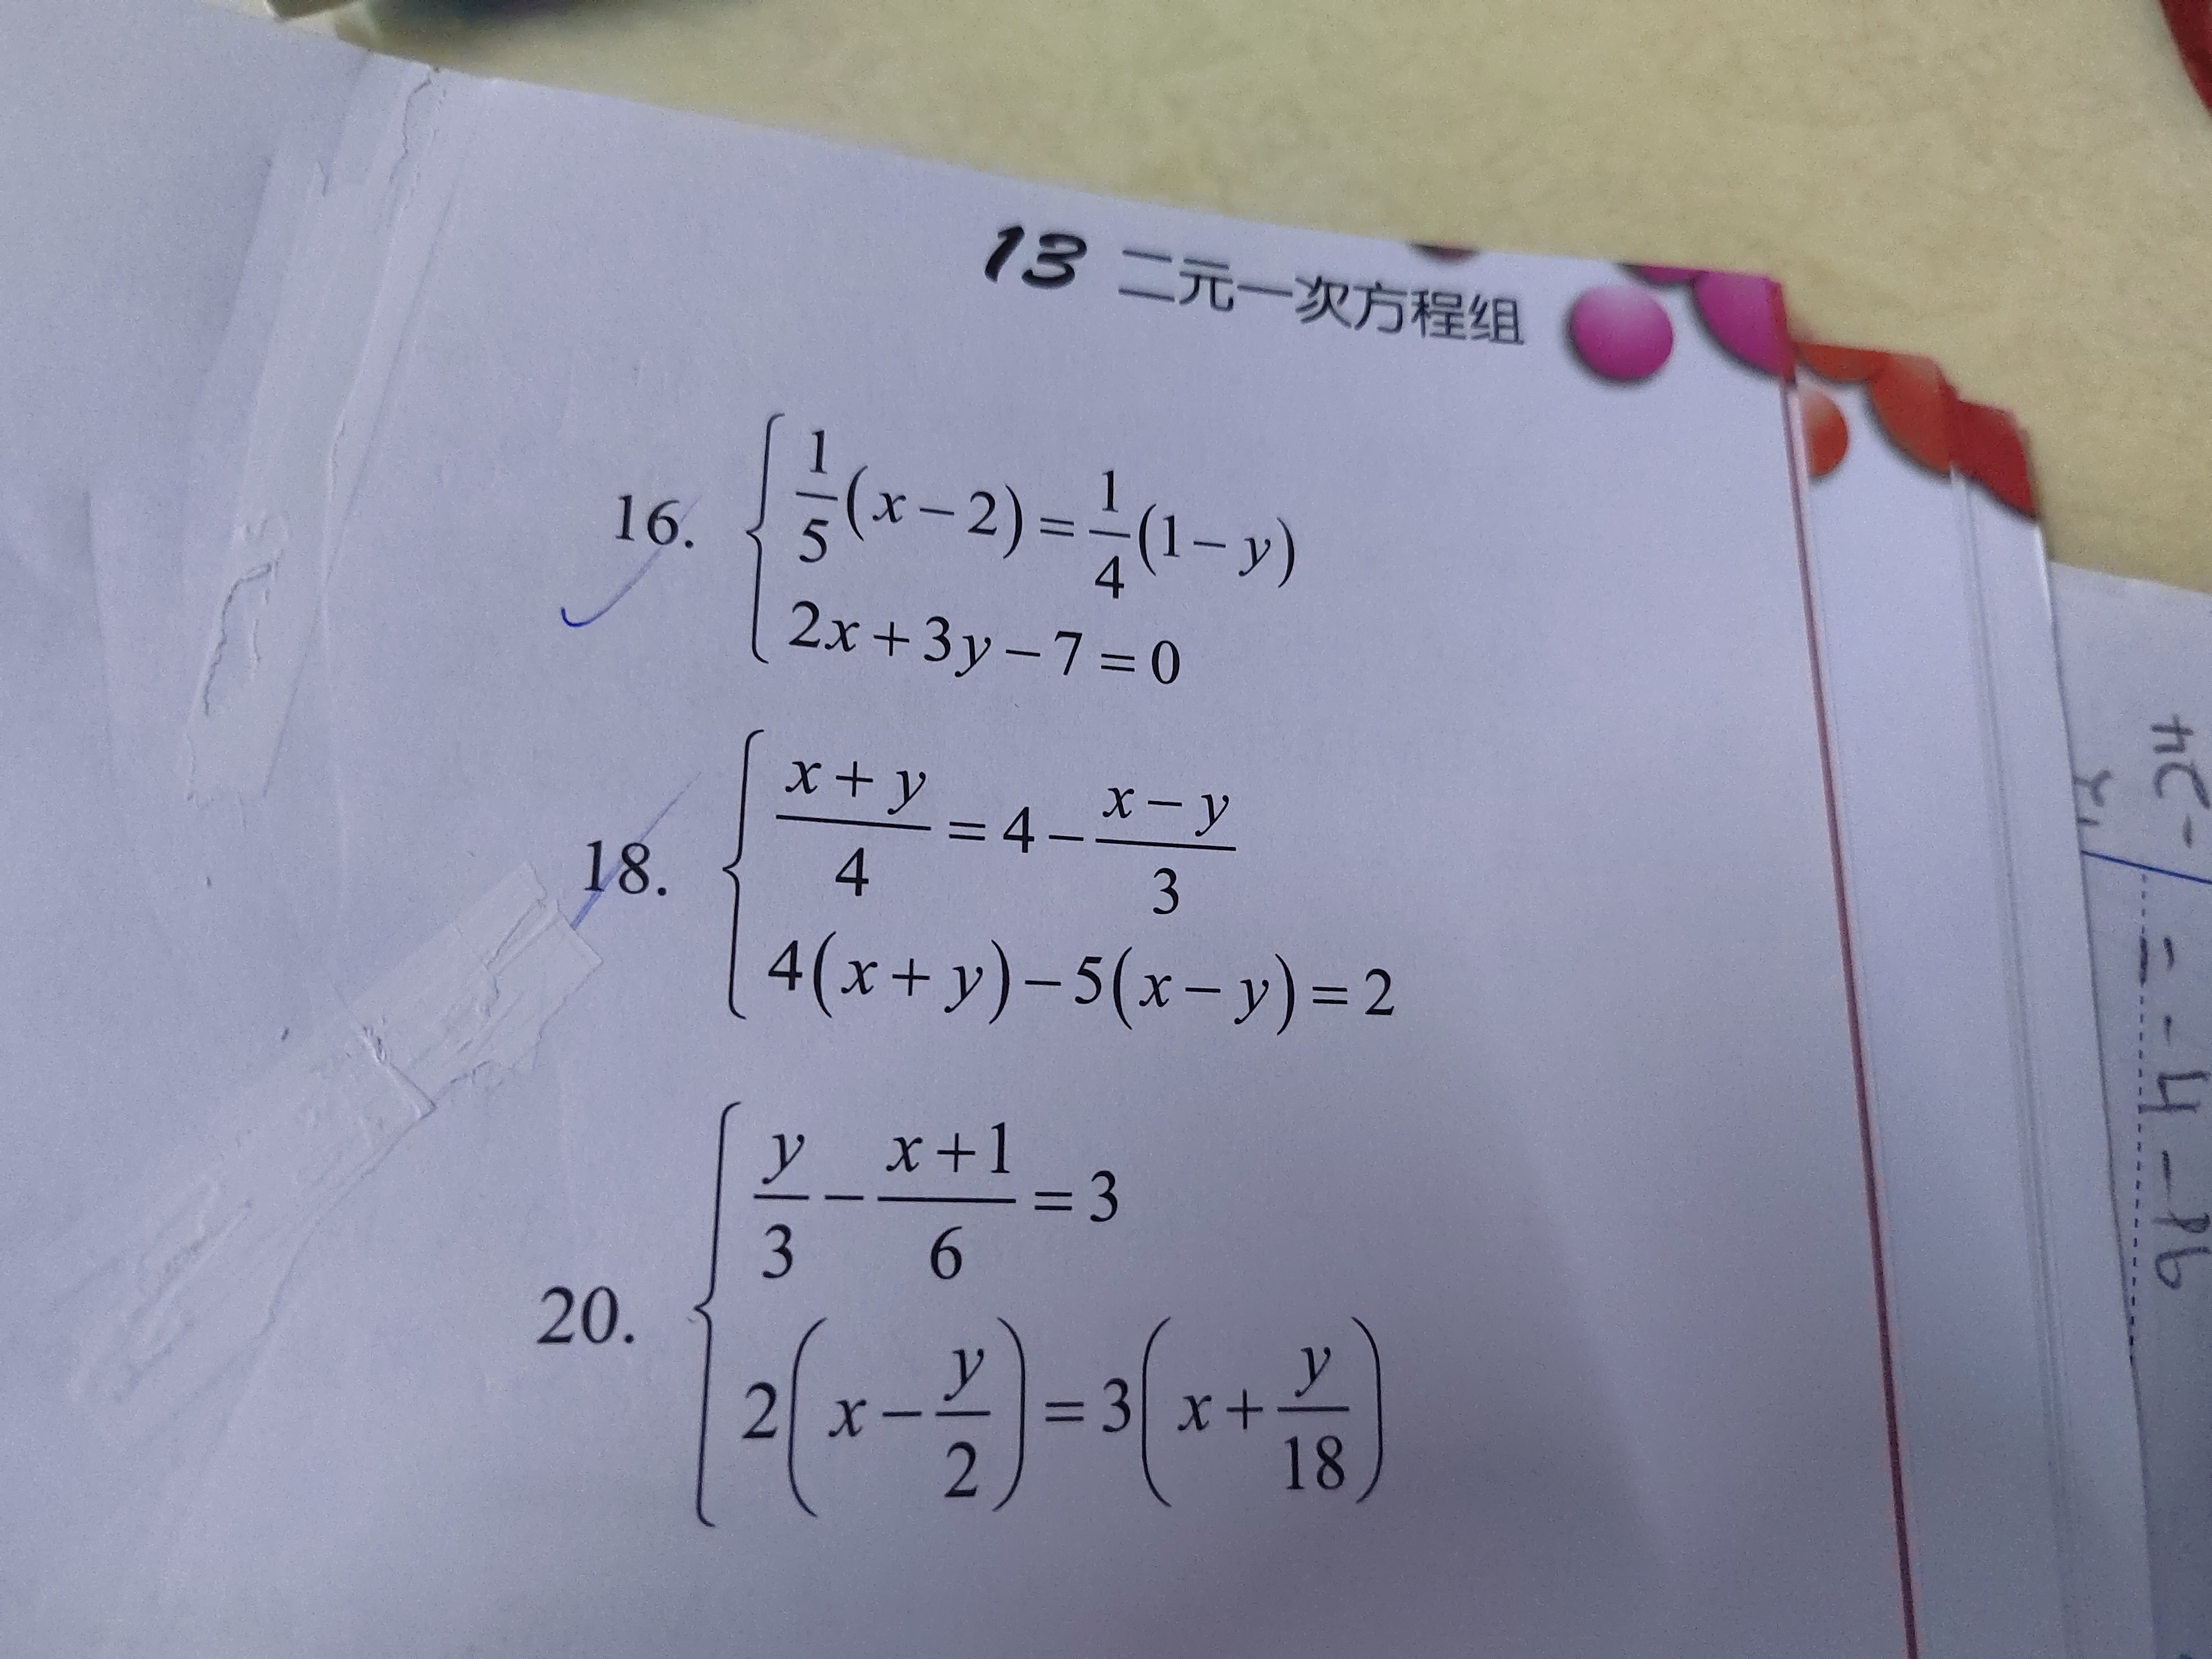 13 二元一次方程组
16. { 1/5(x−2)=1/4(1−y)
2x+3y−7=0
18. { (x+y)/4=4−(x−y)/3
4(x+y)−5(x−y)=2
20. { y/3−(x+1)/6=3
2(x−y/2)=3(x+y/18)